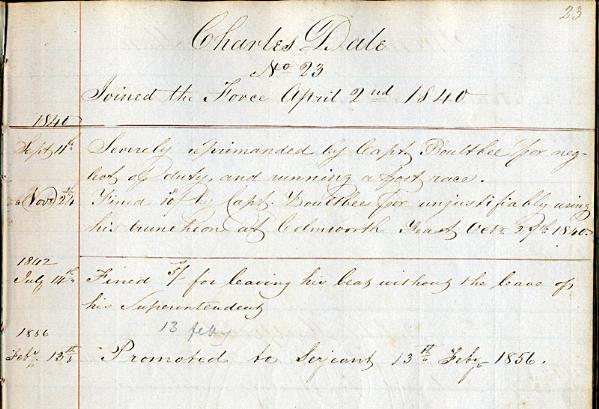 23
Charles Dale
No 23
Joined the Force April 2nd 1840
1840
Sept 11th Severely reprimanded by Capt. Boultbee for neg-
lect of duty, and running a foot race.
Novr 24th Fined by Capt. Boultbee for unjustifiably using
his truncheon at Colmworth Feast Octr 1840.
1842
July 14th Fined for leaving his beat without the leave of
his Superintendent
13 feby
1856
Feby 13th Promoted to Serjeant 13th Feby 1856.